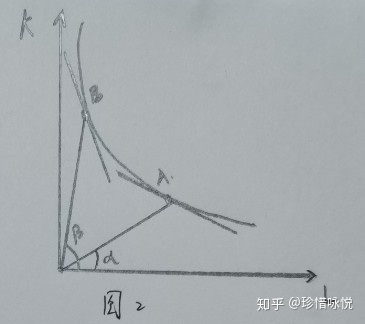 K
B
A
β
α
L
图2
知乎 @珍惜咏悦